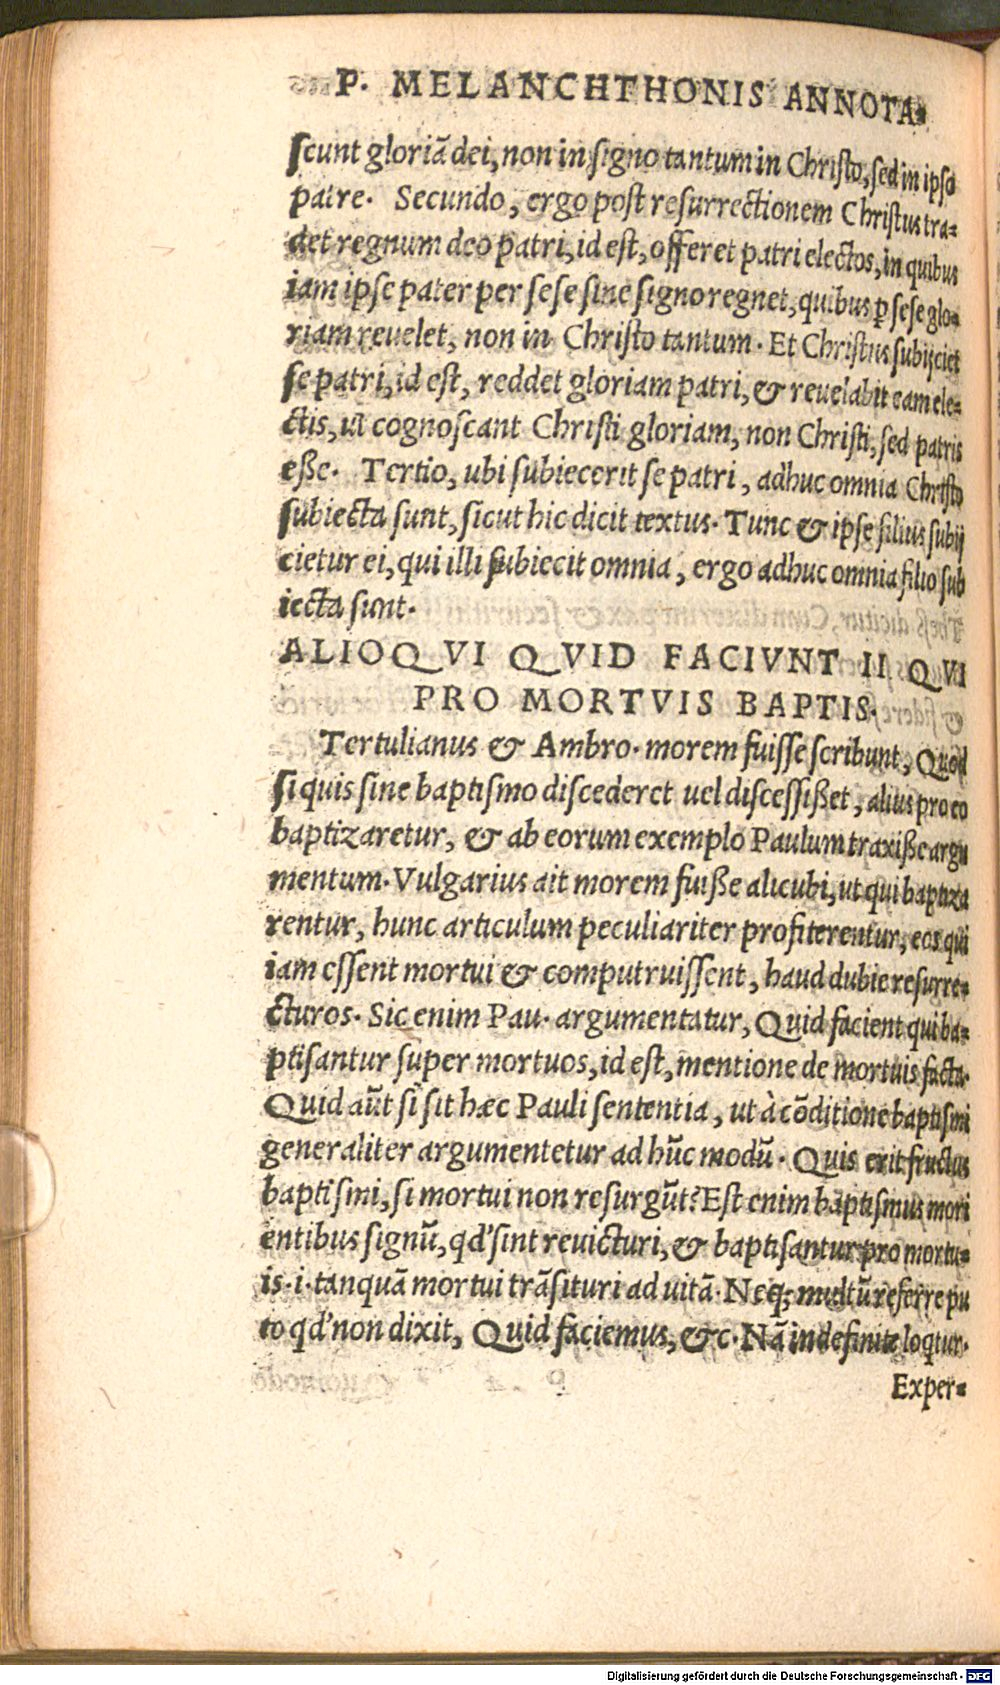 P. MELANCHTHONIS ANNOTA-
scunt gloriã dei, non in signo tantum in Christo, sed in ipso
patre. Secundo, ergo post resurrectionem Christus tra-
det regnum deo patri, id est, offeret patri electos, in quibus
iam ipse pater per sese sine signo regnet, quibus ꝑ sese glo-
riam reuelet, non in Christo tantum. Et Christus subijciet
se patri, id est, reddet gloriam patri, & reuelabit eam ele-
ctis, ut cognoscant Christi gloriam, non Christi, sed patris
eße. Tertio, ubi subiecerit se patri, adhuc omnia Christo
subiecta sunt, sicut hic dicit textus. Tunc & ipse filius subij
cietur ei, qui illi subiecit omnia, ergo adhuc omnia filio sub
iecta sunt.
ALIOQVI QVID FACIVNT II QVI
PRO MORTVIS BAPTIS.
Tertulianus & Ambro. morem fuisse scribunt, Quod
si quis sine baptismo discederet uel discessißet, alius pro eo
baptizaretur, & ab eorum exemplo Paulum traxiße argu
mentum. Vulgarius ait morem fuiße alicubi, ut qui baptiza
rentur, hunc articulum peculiariter profiterentur, eos qui
iam essent mortui & computruissent, haud dubie resurre-
cturos. Sic enim Pau. argumentatur, Quid facient qui ba-
ptisantur super mortuos, id est, mentione de mortuis facta.
Quid aũt si sit hæc Pauli sententia, ut à cõditione baptismi
generaliter argumentetur ad hũc modũ. Quis erit fructus
baptismi, si mortui non resurgũt? Est enim baptismus mori
entibus signũ, qd' sint reuicturi, & baptisantur pro mortu-
is .i. tanquã mortui trãsituri ad uitã. Neq; multũ referre pu
to qd' non dixit, Quid faciemus, &c. Nã indefinite loqtur.
Exper-
Digitalisierung gefördert durch die Deutsche Forschungsgemeinschaft - DFG